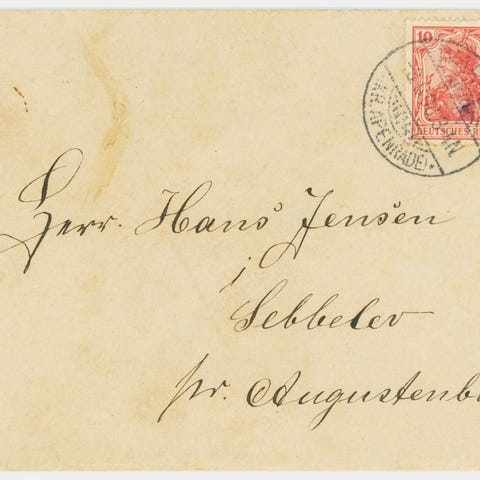 10
DEUTSCHES R
(KR. APENRADE)
Herr. Hans Jensen
i
Sebbelev
pr. Augustenb